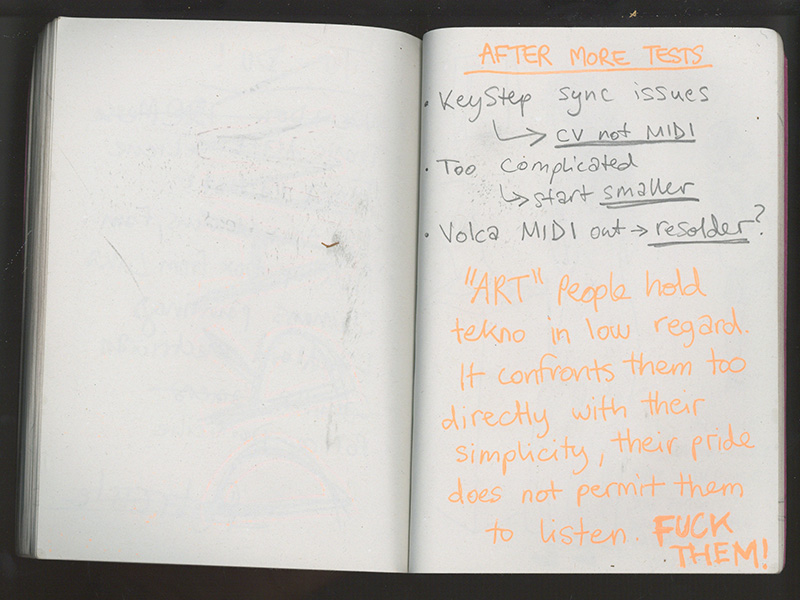 AFTER MORE TESTS
· KeyStep sync issues
↳ CV not MIDI
· Too complicated
↳ start smaller
· Volca MIDI out → resolder?
"ART" people hold
tekno in low regard.
It confronts them too
directly with their
simplicity, their pride
does not permit them
to listen. FUCK
THEM!